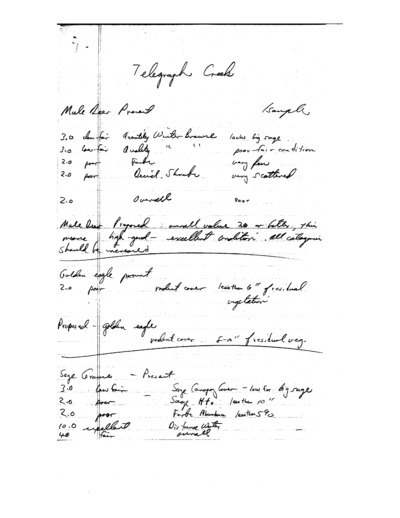 Telegraph Creek
Mule Deer Present Example
3.0 low-fair Quantity Winter Browse lacks big sage
3.0 low-fair Quality " " poor-fair condition
2.0 poor Forbs very few
2.0 poor Decid. Shrubs very scattered
2.0 Overall Poor
Mule Deer Proposed : overall value 30 or better, this
means high-good - excellent condition. All categories
should be increased
Golden eagle present
2.0 poor rodent cover less than 6" of residual
vegetation
Proposed - golden eagle
rodent cover of residual veg.
Sage Grouse - Present
3.0 low fair - Sage Canopy Cover - low for big sage
2.0 poor - Sage Ht. less than 10"
2.0 poor Forbs Abundance less than 5%
10.0 excellent Distance Water
4.0 fair overall